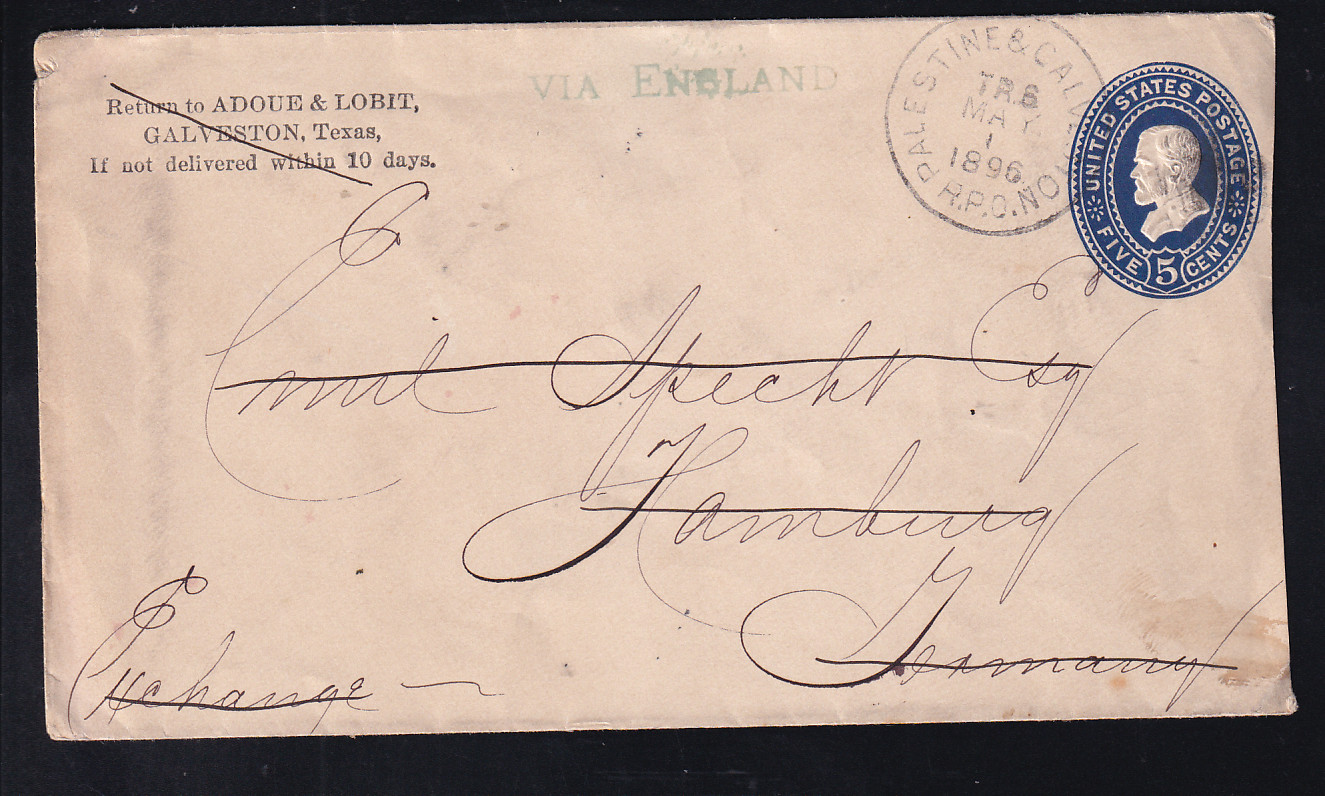 VIA ENGLAND
Return to ADOUE & LOBIT,
GALVESTON, Texas,
If not delivered within 10 days.
PALESTINE &
TR.6
MAY
1
1896
R.P.O. NO
UNITED STATES POSTAGE
FIVE 5 CENTS
Emil Specht Esq
Hamburg
Germany
Exchange